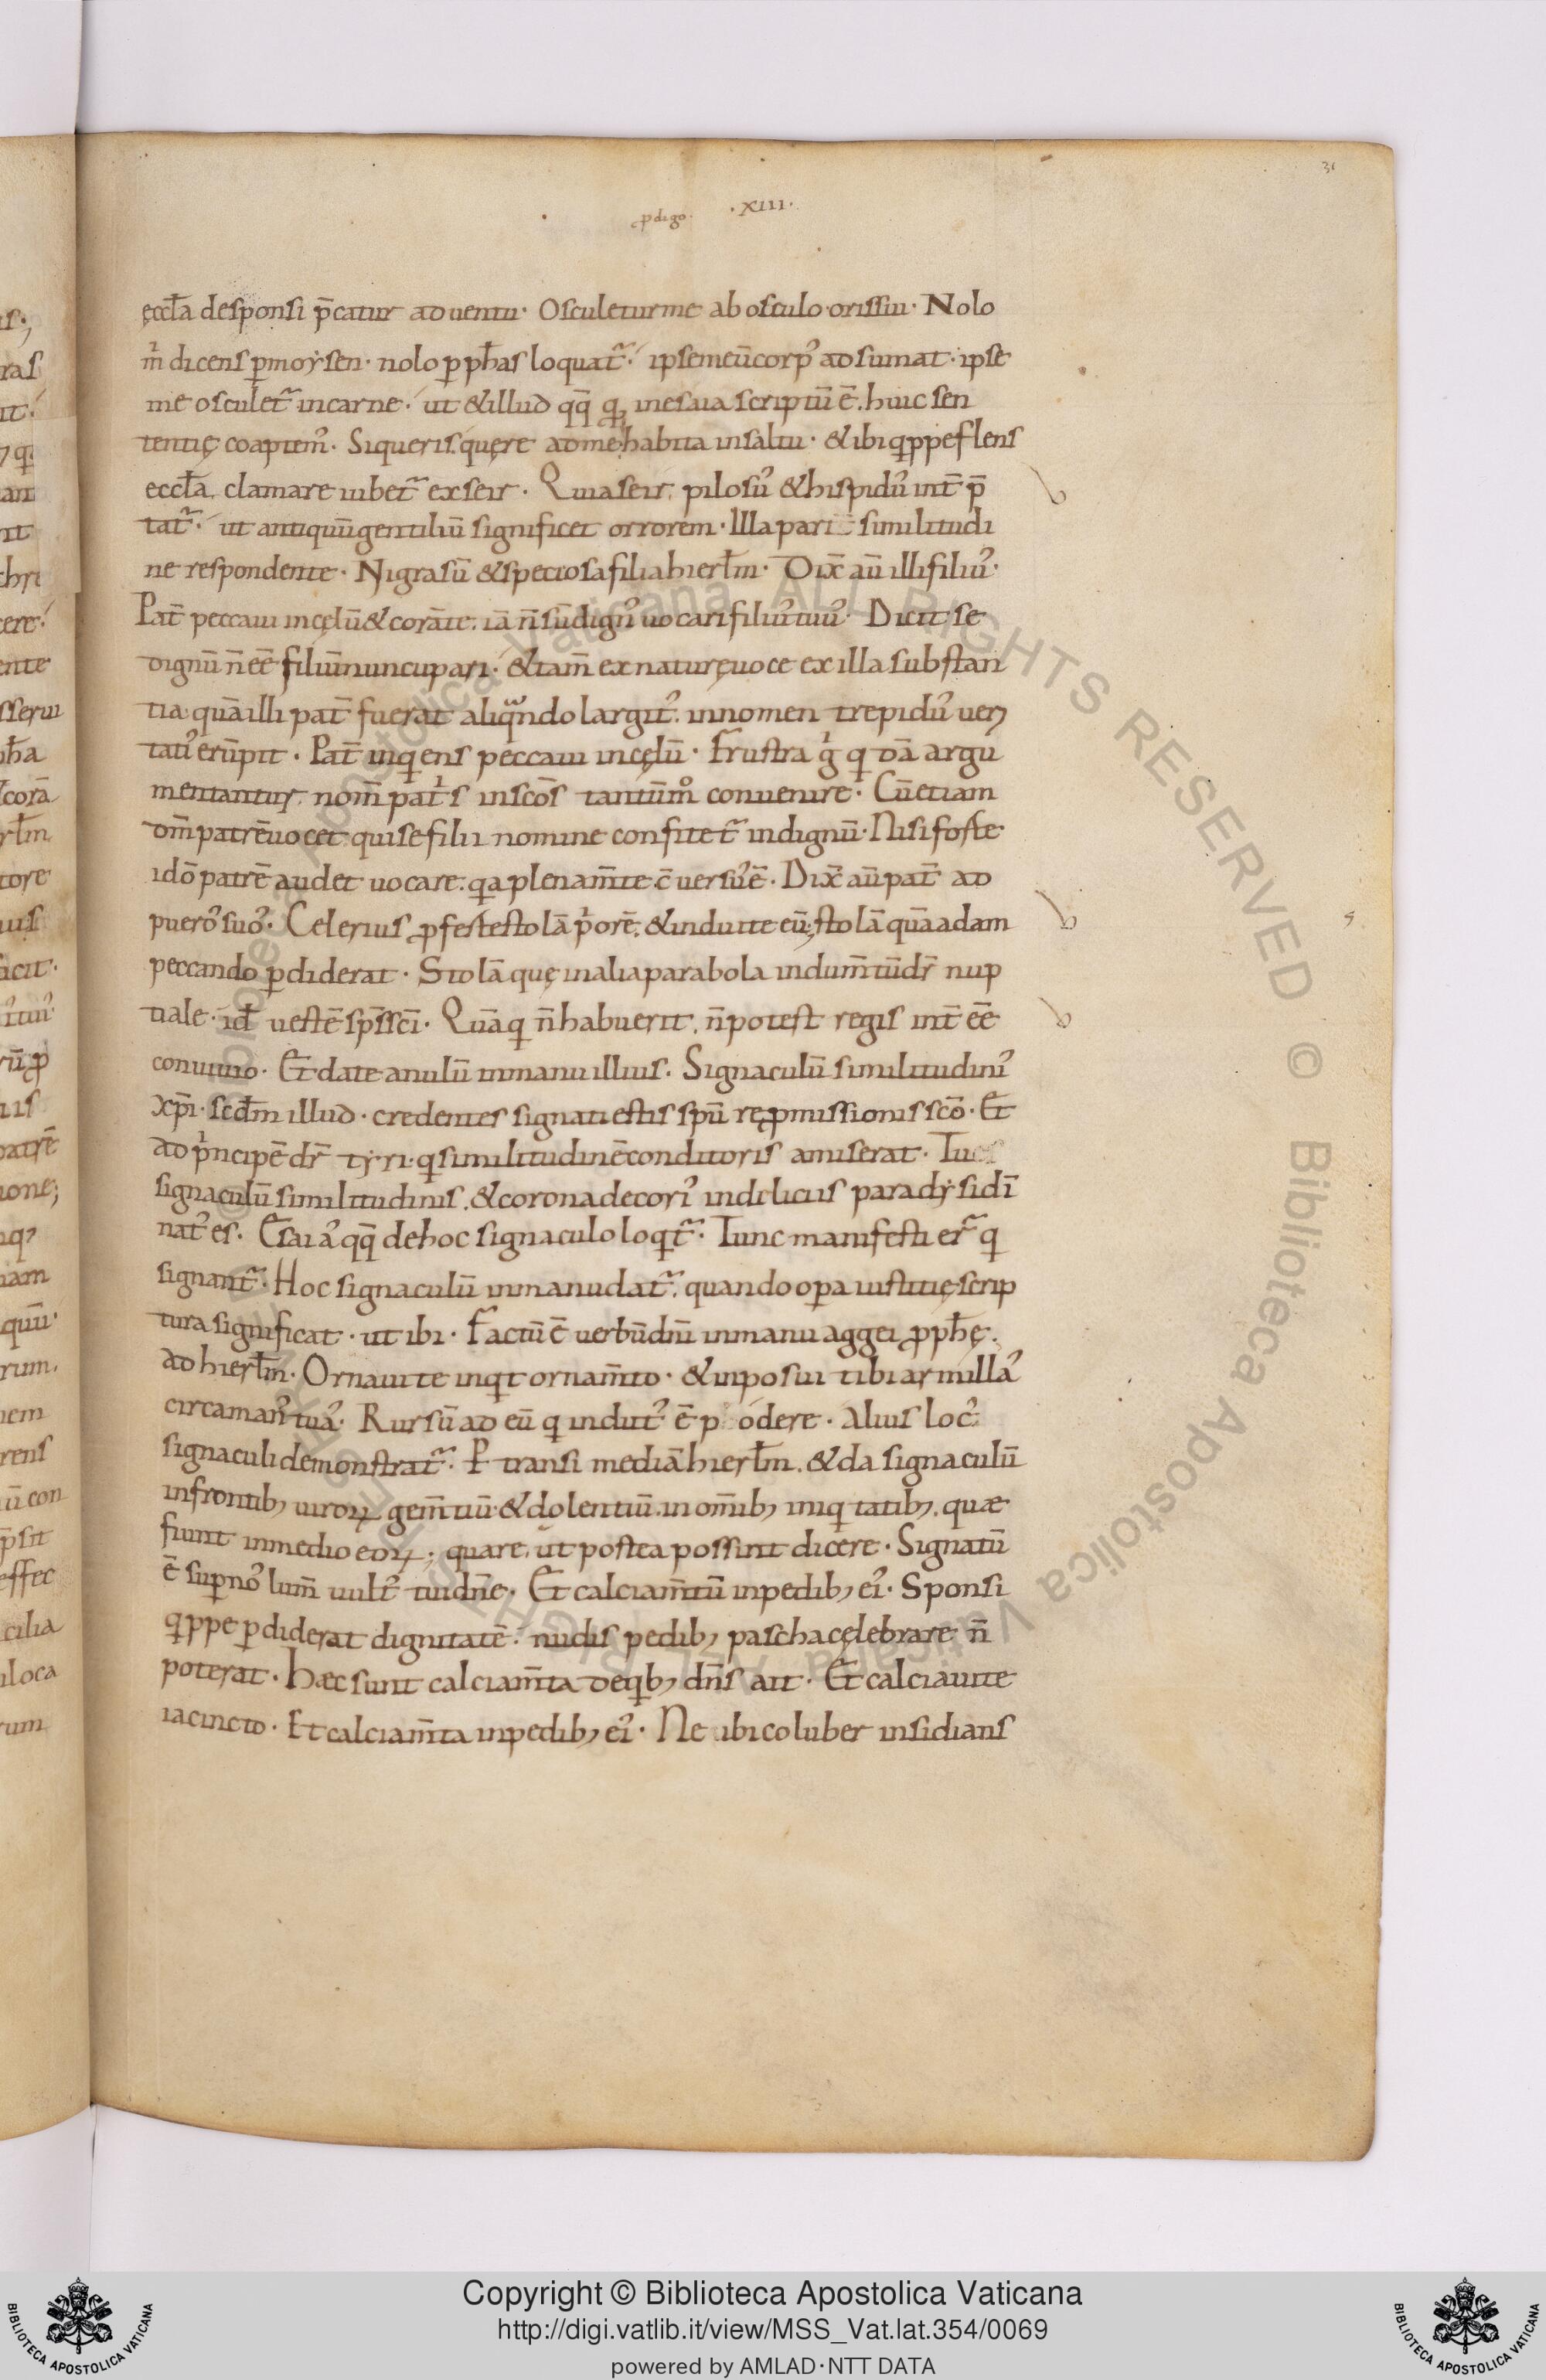 31
ꝓdigo· ·XIII·
ęccła desponsi p̄catur aduentu· Osculeturme ab osculo·orissui· Nolo
m̍ dicens ꝑmoẏsen· nolo ꝑ ꝓph̄as loquat᷑· ipsemeūcorpꝰ adsumat· ipse
me osculet᷑ incarne· ut &illud qq̄ inesaia scriptū ē· huic sen
tentię coaptemꝰ· Siqueris quęre adme habita insaltu· &ibi q̍ppe flens
eccła clamare iubet᷑ exseir· Quiaseir pilosuꝰ &hispiduꝰ int̄ p̄
tat᷑· ut antiquūgentiliū significet orrorem· Illa pari similitudi
ne respondente· Nigrasū &speciosafiliahierłm· Dix̄ aū illifiliuꝰ·
Pat̄ peccaui incęlū&corāte· iā n̄sūdignꝰ uocarifiliuꝰtuuꝰ· Dicit se
dignū n̄eē filiūnuncupari· &tam̄ ex naturęuoce ex illa substan
tia quāilli pat̄ fuerat aliqͣndo largitꝰ· innomen trepiduꝰ ueri
tatꝰ erūpit· Pat̄ inq̍ens peccaui incęlū· Frustra g̍ q̍dā argu
mentantur nom̄ pat̍s inscōs tantūm° conuenire· Cūetiam
dm̄ patrēuocet quisefilii nomine confitet᷑ indignū· Nisi foste
idō patrē audet uocare· q̍a plenam̄te c̄uersuꝰē· Dix̄ aū pat̄ ad
pueroꝰ suoꝰ· Celerius ꝓfertestolā p̍orē· &induite eū· stolā quāadam
peccando ꝑdiderat· Stolā quę inaliaparabola indum̄tūdr̄ nup
tiale· id uestē sp̄s sc̄i· Quāq̍ n̄habuerit n̄potest regis int̄eē
conuiuio· Et date anulū inmanu illius· Signaculū similitudinꝰ
xp̄i· scdm̄ illud· credentes signati estis spū rępmissionis scō· Et
ad p̍ncipē dr̄ tẏri q̍similitudinē conditoris amiserat· Tu
signaculū similitudinis &corona decorꝰ indeliciis paradẏsi dī
natꝰ es· Esaiaꝰ qq̄ dehoc signaculo loq̍t᷑· Tunc manifesti er᷑ q̍
signant᷑· Hoc signaculū inmanudat᷑ quandoopera iustitię scrip
tura significat· ut ibi· Factū ē uerbūdn̄i inmanu aggei ꝓph̄ę·
ad hierłm· Ornauite inq̍t ornam̄to· &inposui tibi armillaꝰ
circamanꝰ tuaꝰ· Rursū ad eū q̍ indutꝰ ē podere· Alius locꝰ
signaculi demonstrat᷑· Ptransi mediā hierłm &da signaculū
infrontib; uiroꝝ gem̄tiū &dolentiū inom̄ib; iniq̍tatib; quæ
fiunt inmedio eoꝝ; quare ut postea possint dicere· Signatū
ē suꝑnoꝰ lum̄ uultꝰ tui dn̄e· Et calciam̄tū inpedib; eiꝰ· Sponsi
q̍ppe ꝑdiderat dignitatē nudis pedib; pascha cęlebrare n̄
poterat· Hæc sunt calciam̄ta deq̍b; dn̄s ait· Et calciauite
iacincto· Et calciam̄ta inpedib; eiꝰ· Ne ubicoluber insidians
Copyright © Biblioteca Apostolica Vaticana
http://digi.vatlib.it/view/MSS_Vat.lat.354/0069
powered by AMLAD·NTT DATA
BIBLIOTECA APOSTOLICA VATICANA
BIBLIOTECA APOSTOLICA VATICANA